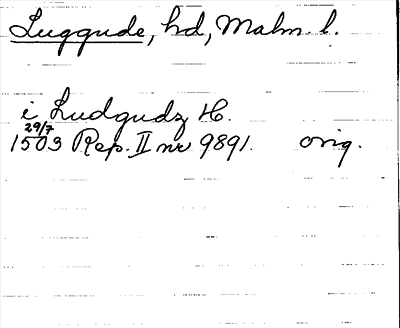 Luggude, hd, Malm. l.
i Ludgudz H.
29/7
1503 Rep. II nr 9891. orig.